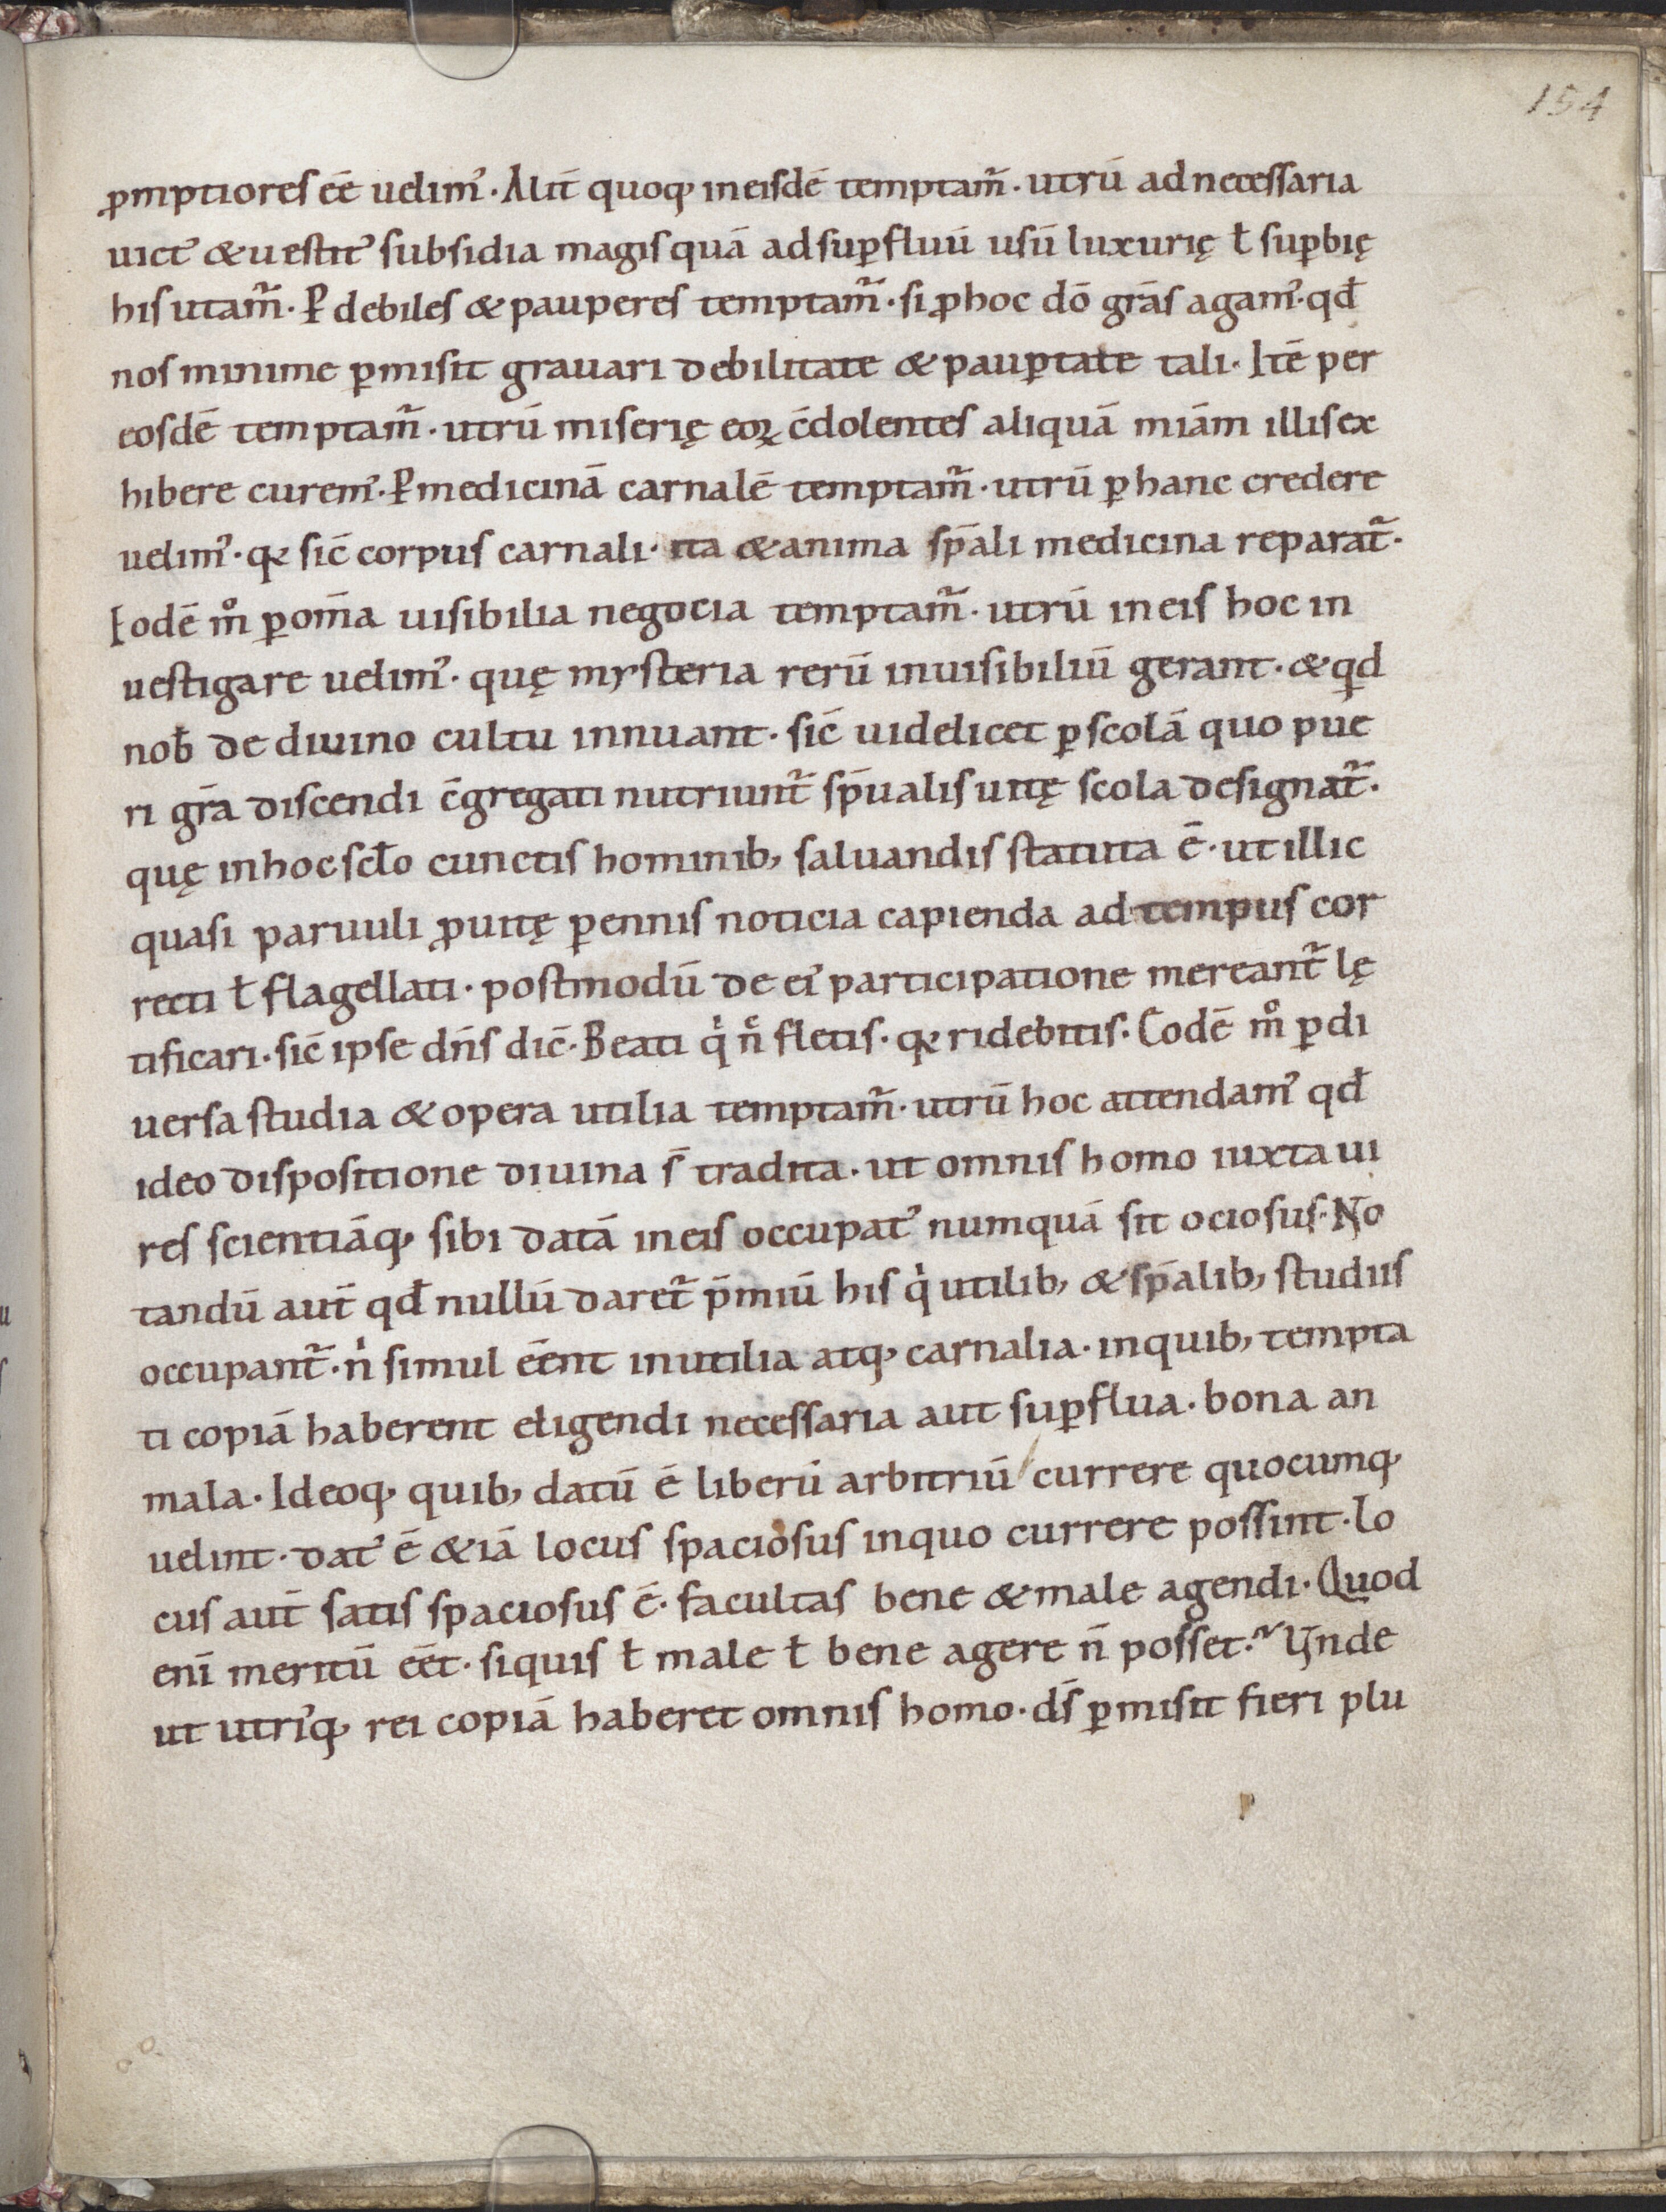 154
ꝓmptiores eē uelimꝰ. Alit̄ quoq; in eisdē temptam̃. utrū ad necessaria
uictꝰ & uestitꝰ subsidia magis quā ad suꝑfluū usū luxurię ł suꝑbię
his utam̃. Ꝑ debiles & pauperes temptam̃. si ꝓ hoc dō grās agamꝰ. qđ
nos minime ꝑmisit grauari debilitate & pauꝑtate tali. Itē per
eosdē temptam̃. utrū miserię eoꝝ c̄dolentes aliquā miām illis ex
hibere curemꝰ. Ꝑ medicinā carnalē temptam̃. utrū ꝑ hanc credere
uelimꝰ. qꝛ sic̄ corpus carnali. ita & anima sp̄ali medicina reparat̃.
Eodē m̊ ꝑ om̄a uisibilia negocia temptam̃. utrū in eis hoc in
uestigare uelimꝰ. quę mysteria rerū inuisibiliū gerant. & qͥd
nob̄ de diuino cultu innuant. sic̄ uidelicet ꝑ scolā quo pue
ri grā discendi c̄gregati nutriunt̃ sp̄ualis uitę scola designat̃.
quę in hoc sc̄lo cunctis hominib; saluandis statuta ē. ut illic
quasi paruuli ꝓ uitę ꝑennis noticia capienda ad tempus cor
recti ł flagellati. postmodū de eiꝰ participatione mereant̃ lę
tificari. sic̄ ipse dn̄s dic̄. Beati qͥ n̊ fletis. qꝛ ridebitis. Eodē m̊ ꝑ di
uersa studia & opera utilia temptam̃. utrū hoc attendamꝰ qđ
ideo dispositione diuina s̄ tradita. ut omnis homo iuxta ui
res scientiāq; sibi datā in eis occupatꝰ numquā sit ociosus. No
tandū aut̄ qđ nullū daret̃ p̄miū his qͥ utilib; & sp̄alib; studiis
occupant̃. nͥ simul eēnt inutilia atq; carnalia. in quib; tempta
ti copiā haberent eligendi necessaria aut suꝑflua. bona an
mala. Ideoq; quib; datū ē liberū arbitriū currere quocumq;
uelint. datꝰ ē & iā locus spaciosus in quo currere possint. Lo
cus aut̄ satis spaciosus ē. facultas bene & male agendi. Quod
eni̅ meritū eēt. siquis ł male ł bene agere n̄ posset? Unde
ut utriꝰq; rei copiā haberet omnis homo. ds̄ ꝑmisit fieri plu